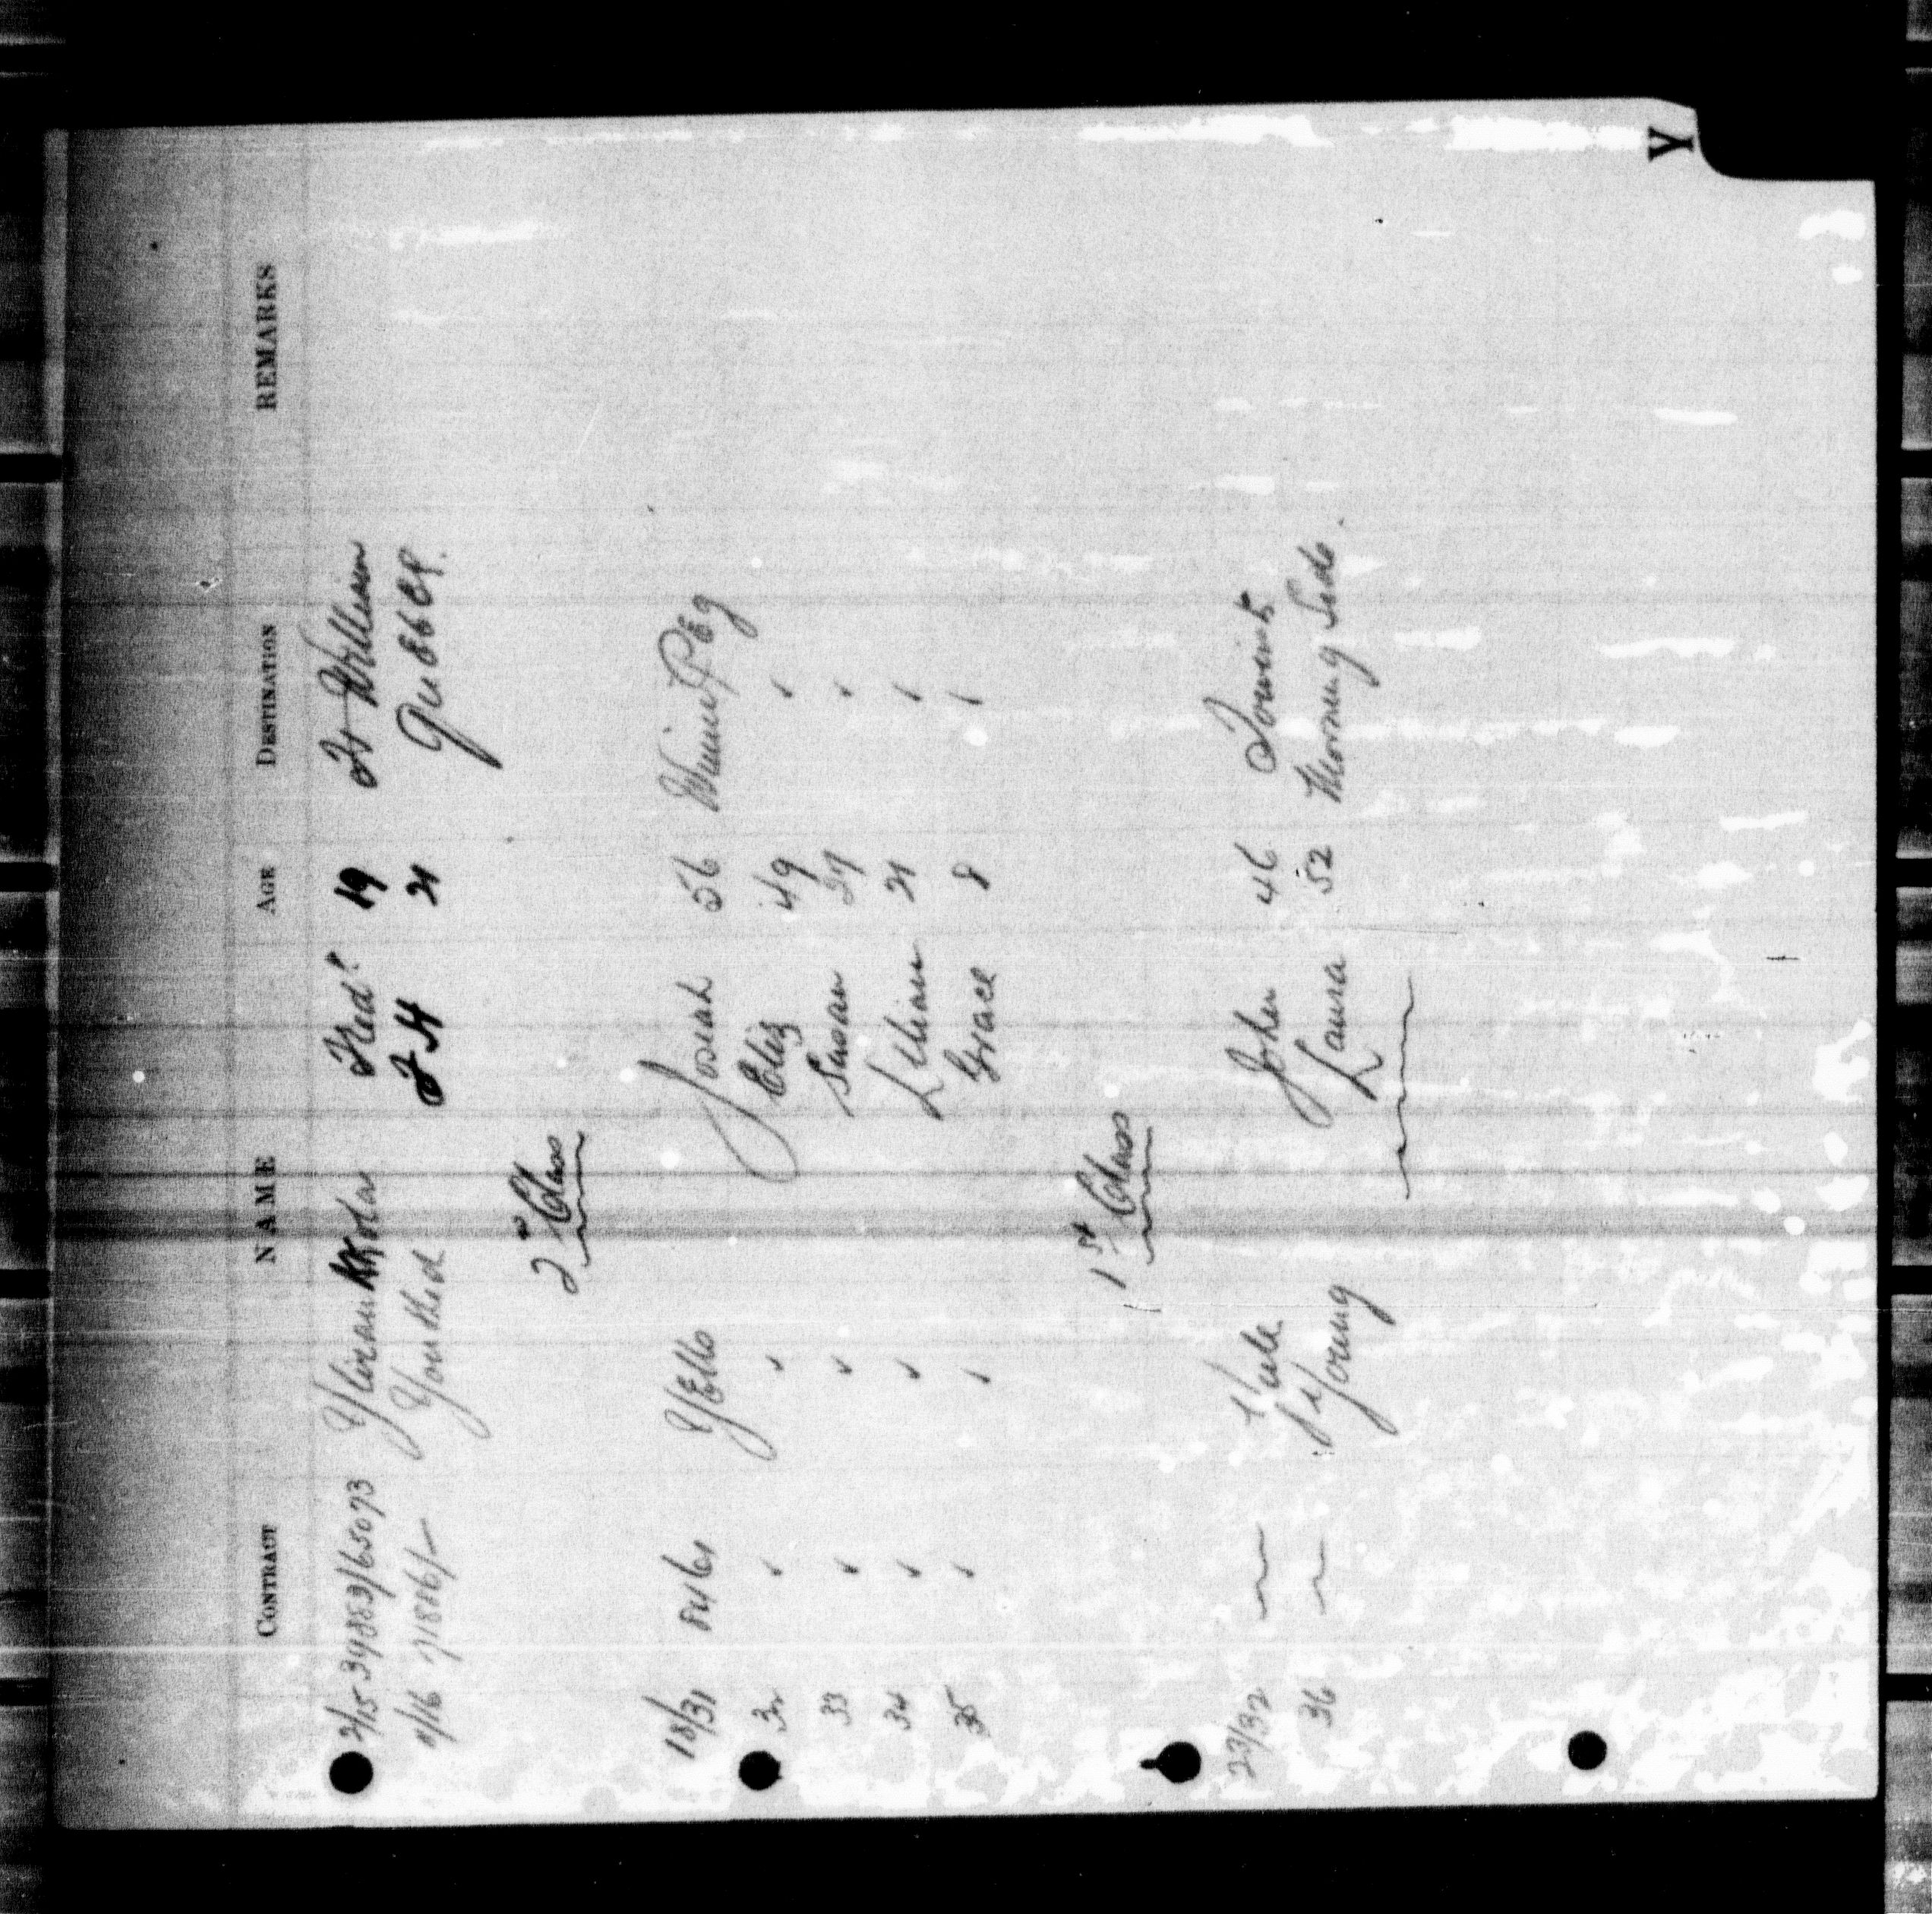 Y
CONTRACT NAME AGE DESTINATION REMARKS
2/15 348839/65073 Fred 19 Ft William
4/16 71886/— Youthed F H 21 Quebec
2nd Class
18/31 84161 Yello Josiah 56 Winnipeg
32 ✓ ✓ Eliz 49 ✓
33 ✓ ✓ Susan 27 ✓
34 ✓ ✓ Lillian 21 ✓
35 ✓ ✓ Grace 8 ✓
1st Class
23/32 Yule John 46 Toronto
36 Young Laura 52 Morning Side.